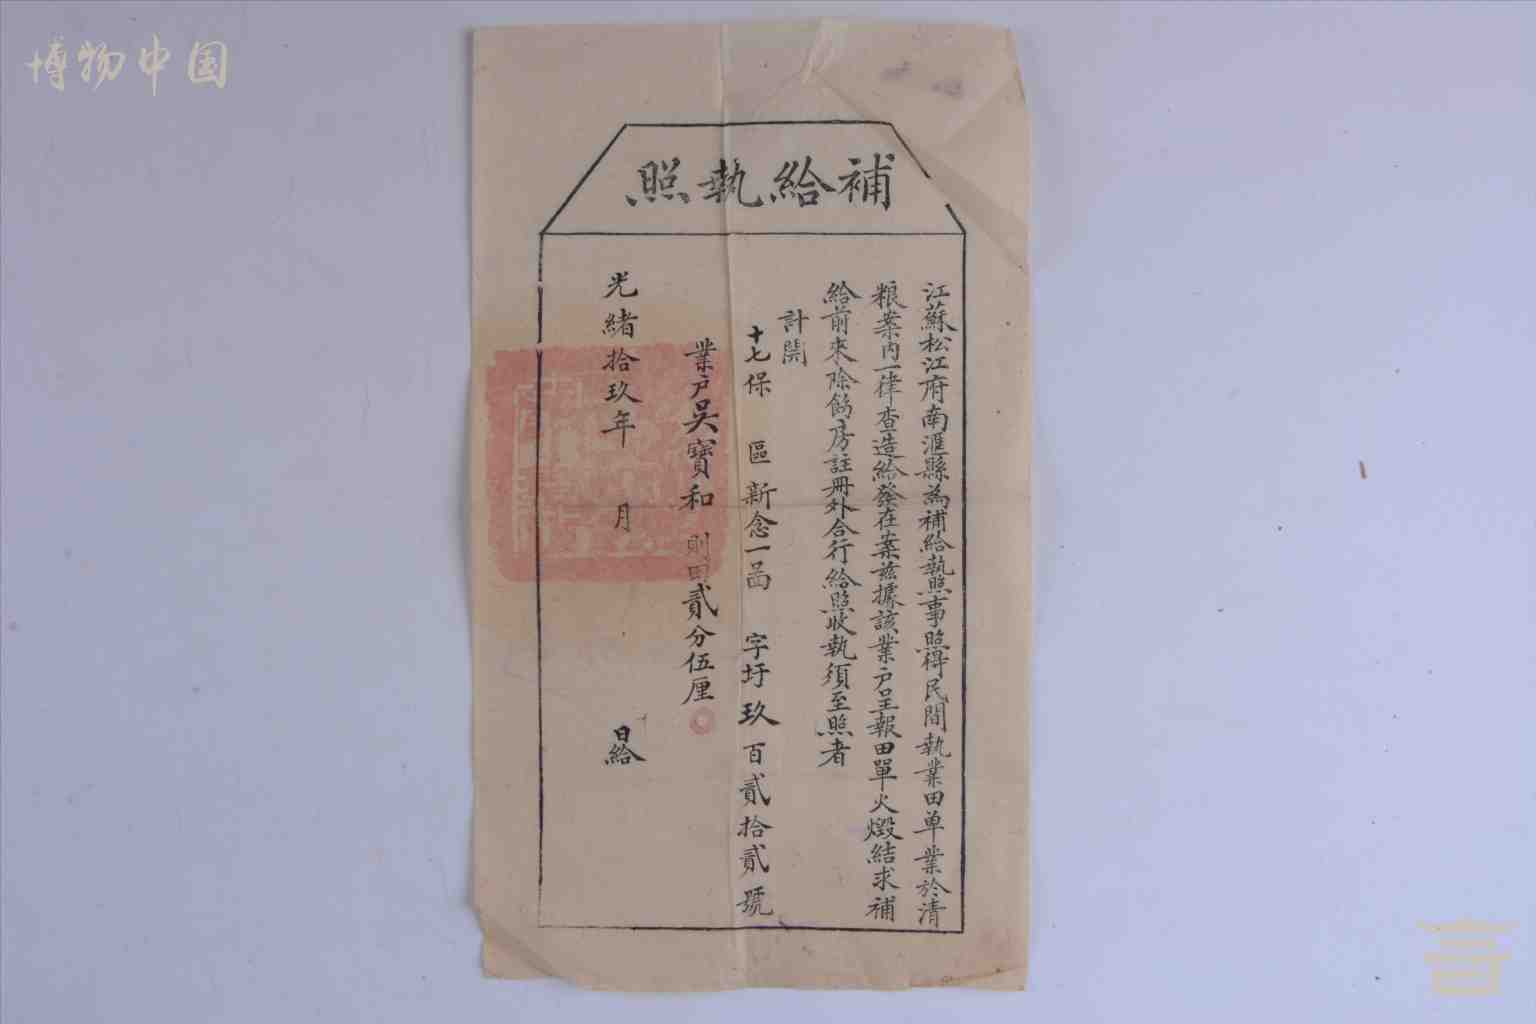 博物中国
補給執照
江蘇松江府南滙縣為補給執照事照得民間執業田单業於清
粮案內一律查造給發在案茲據該業户呈報田單火燬結求補
給前來除飭房註冊外合行給照收執須至照者
計開
十七保 區新念一啚 字圩玖百貳拾貳號
業户吳寶和 則田貳分伍厘
光緒拾玖年 月 日給